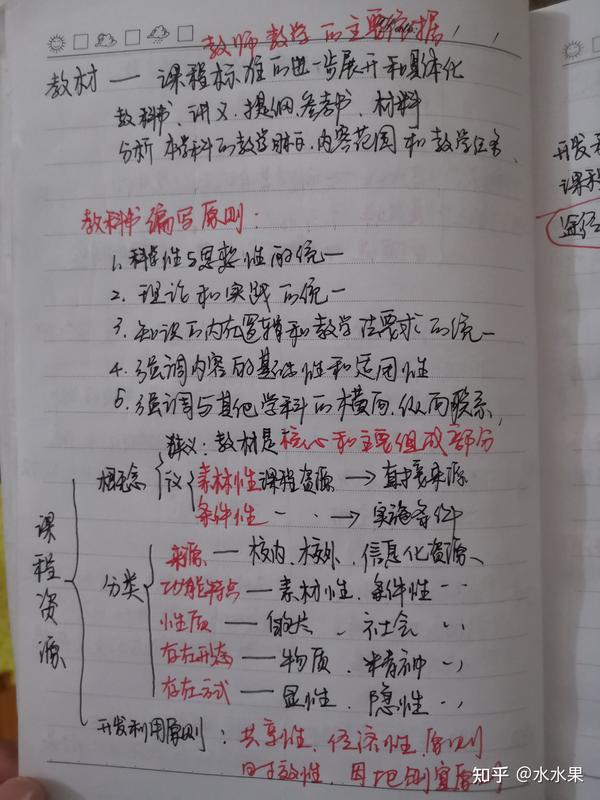 教师教学的主要依据
教材 — 课程标准的进一步展开和具体化
教科书、讲义、提纲、参考书、材料
分析本学科的教学目的、内容范围和教学任务、
教科书编写原则：
1. 科学性与思想性的统一
2. 理论和实践的统一
3. 知识的内在逻辑和教学法要求的统一
4. 强调内容的基础性和适用性
5. 强调与其他学科的横向、纵向联系、
课程资源
概念
狭义：教材是核心和主要组成部分
议
素材性课程资源 → 直接来源
条件性 · · → 实施条件
分类
来源 — 校内、校外、信息化资源、
功能特点 — 素材性、条件性 · ·
性质 — 自然、社会 · ·
存在形态 — 物质、精神 · ·
存在方式 — 显性、隐性 · ·
开发利用原则：共享性、经济性、原则
时效性、因地制宜
知乎 @水水果
开发
课程
途径